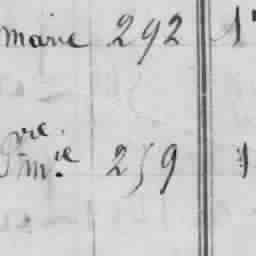 marie 292 1
vre.
Pmie 259 1